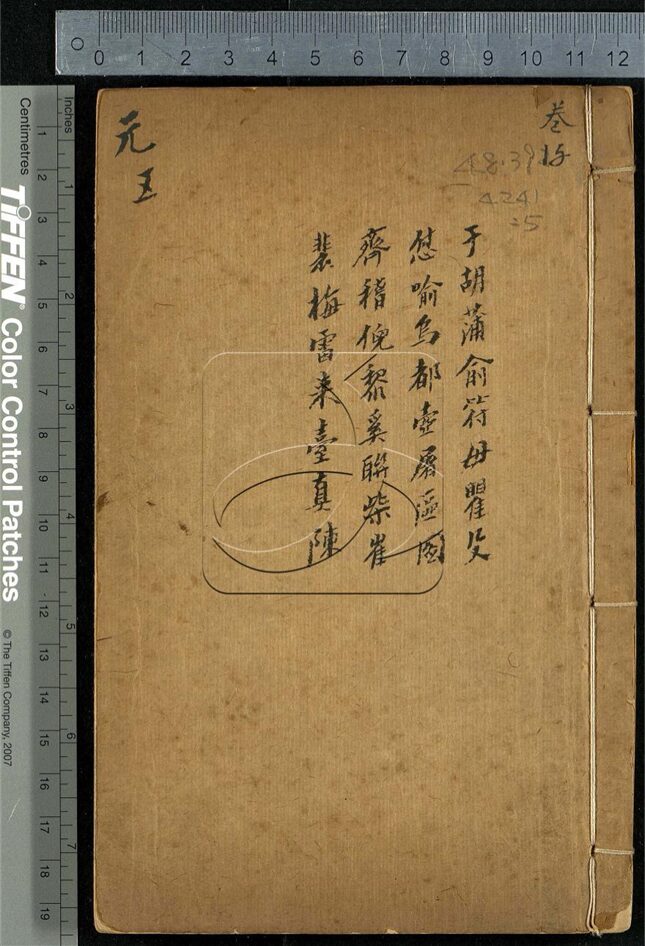 0 0 1 2 3 4 5 6 7 8 9 10 11 12
Inches
Centimetres
1 2 3 4 5 6 7
1 2 3 4 5 6 7 8 9 10 11 12 13 14 15 16 17 18 19
TIFFEN® Color Control Patches
© The Tiffen Company, 2007
卷
48.39
4241
:5
于胡蒲俞符毋瞿
喻烏都壺屠區
齊稽倪黎奚聯柴崔
裴梅雷來臺真陳
元
五